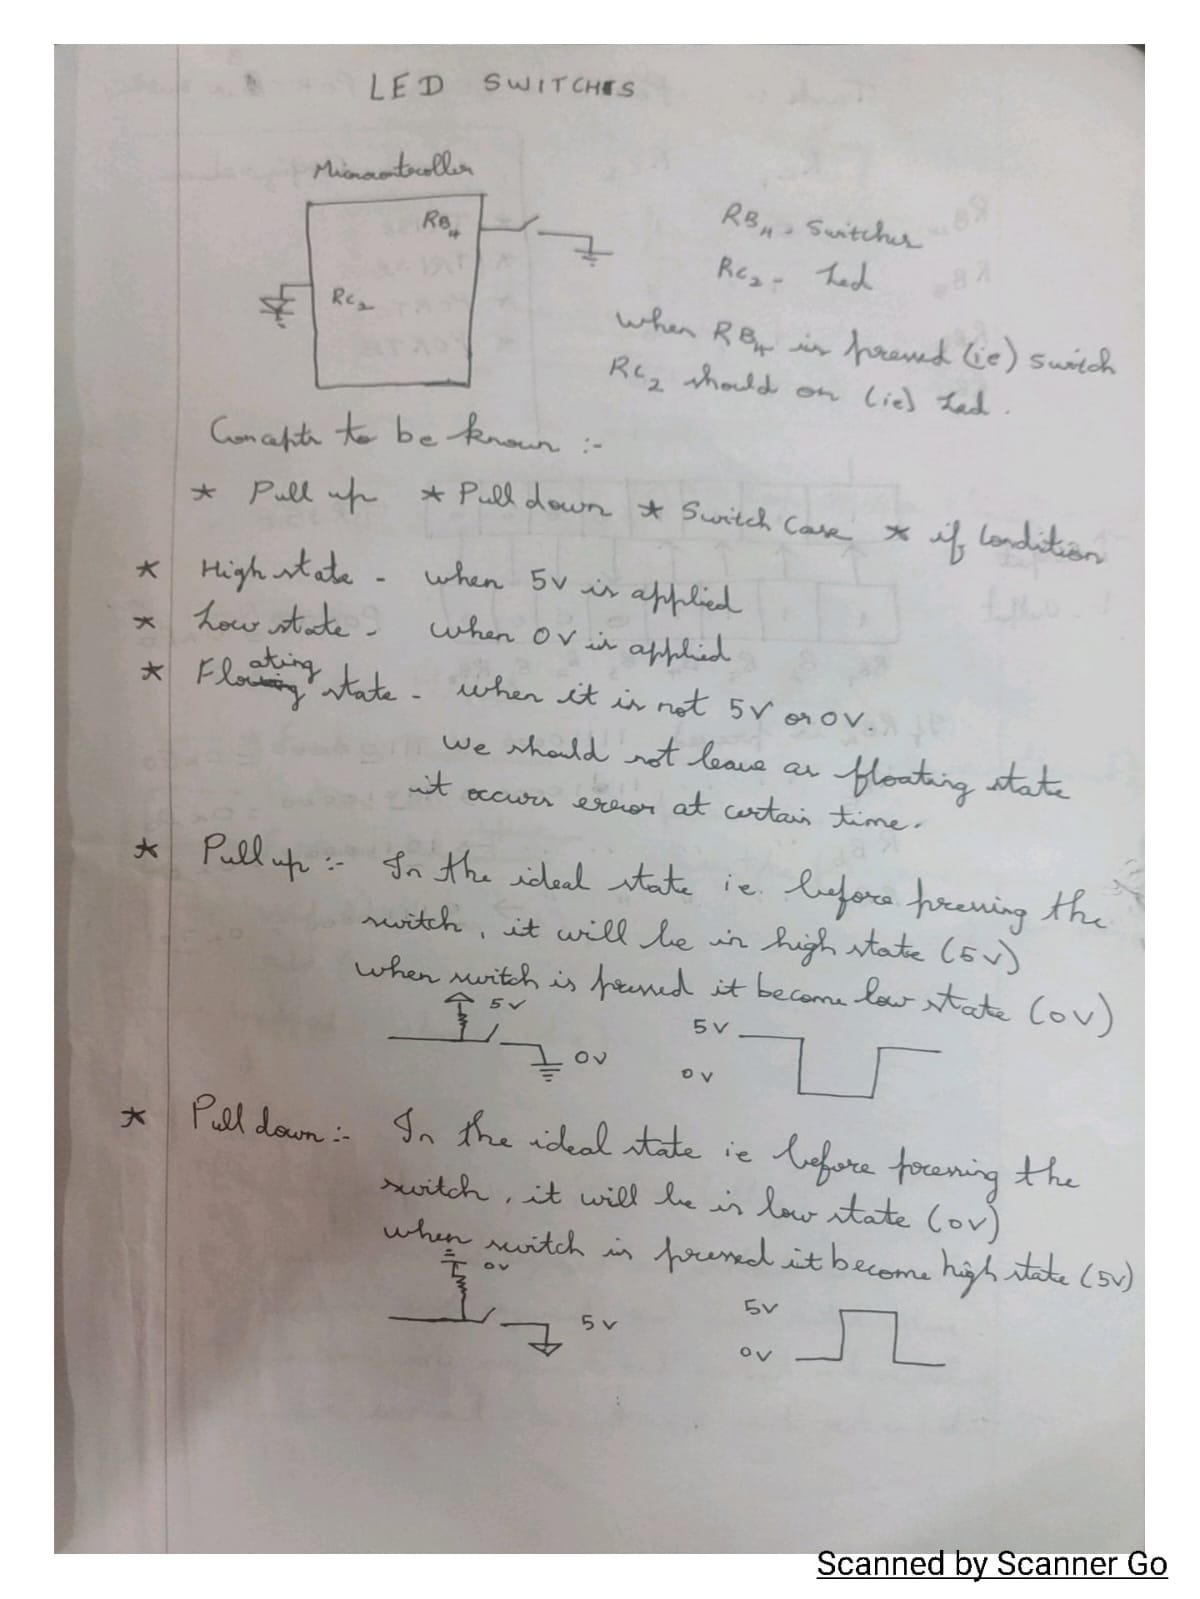 LED SWITCHES
Microcontroller
RB4
RC2
RB4 - Switches
RC2 - Led
When RB4 is pressed (ie) switch
RC2 should on (ie) Led.
Concepts to be known :-
* Pull up * Pull down * Switch Case * if Condition
* High state - when 5V is applied
* Low state - when 0V is applied
* Floating state - when it is not 5V or 0V.
We should not leave as floating state
it occurs error at certain time.
* Pull up :- In the ideal state ie. before pressing the
switch, it will be in high state (5V)
when switch is pressed it become low state (0V)
5V
0V
5V
0V
* Pull down :- In the ideal state ie before pressing the
switch, it will be in low state (0V)
when switch is pressed it become high state (5V)
0V
5V
5V
0V
Scanned by Scanner Go